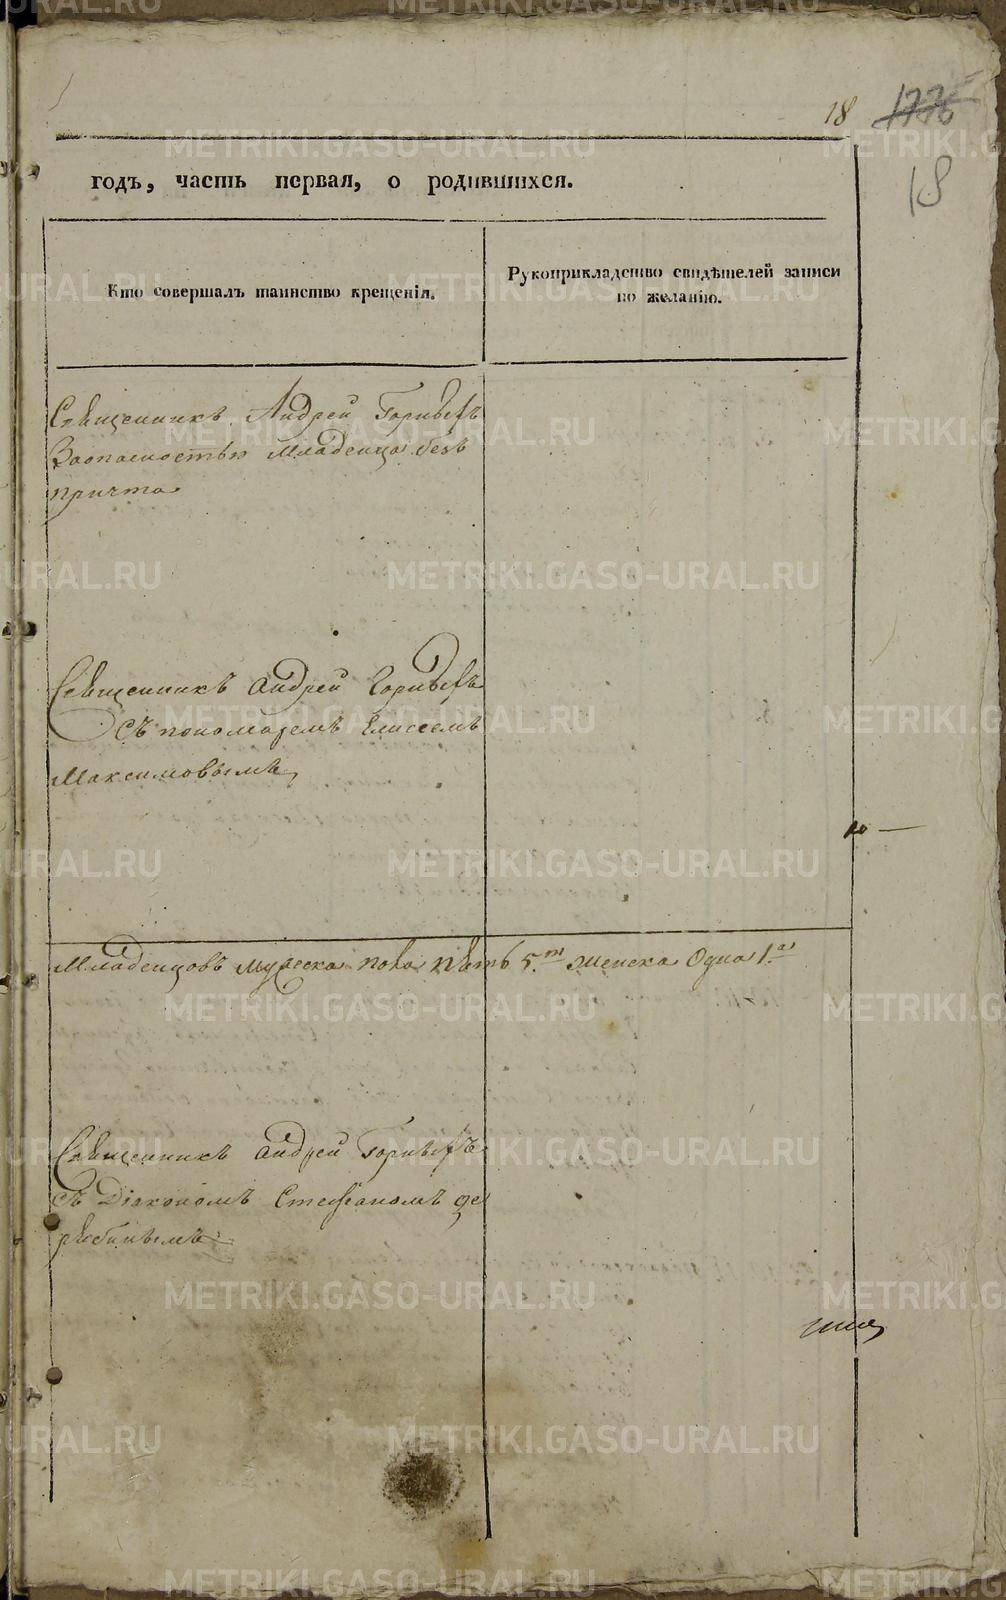 18 1776
18
годъ, часть первая, о родившихся.
Кто совершалъ таинство крещенія.
Рукоприкладство свидѣтелей записи
по желанію.
Священникъ Андрей
Заопасностью младенца безъ
причта
Священникъ Андрей
съ пономаремъ Елисеемъ
Максимовымъ
10 —
Младенцовъ мужеска пола пять 5. женска Одна 1.
Священникъ Андрей
съ Діакономъ Стефаномъ
METRIKI.GASO-URAL.RU